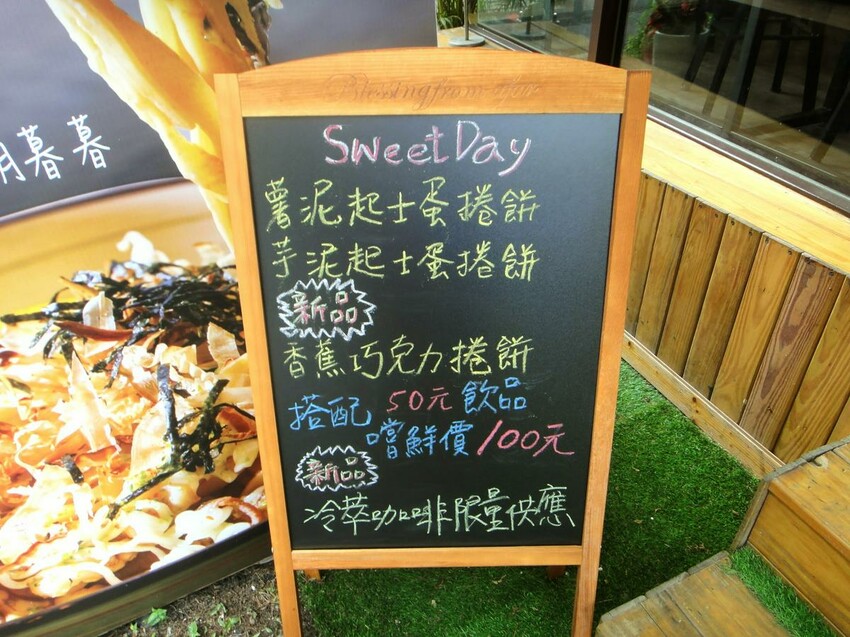 Blessing from afar
Sweet Day
薯泥起士蛋捲餅
芋泥起士蛋捲餅
新品
香蕉巧克力捲餅
搭配 50元飲品
嚐鮮價100元
新品
冷萃咖啡限量供應
朝暮暮